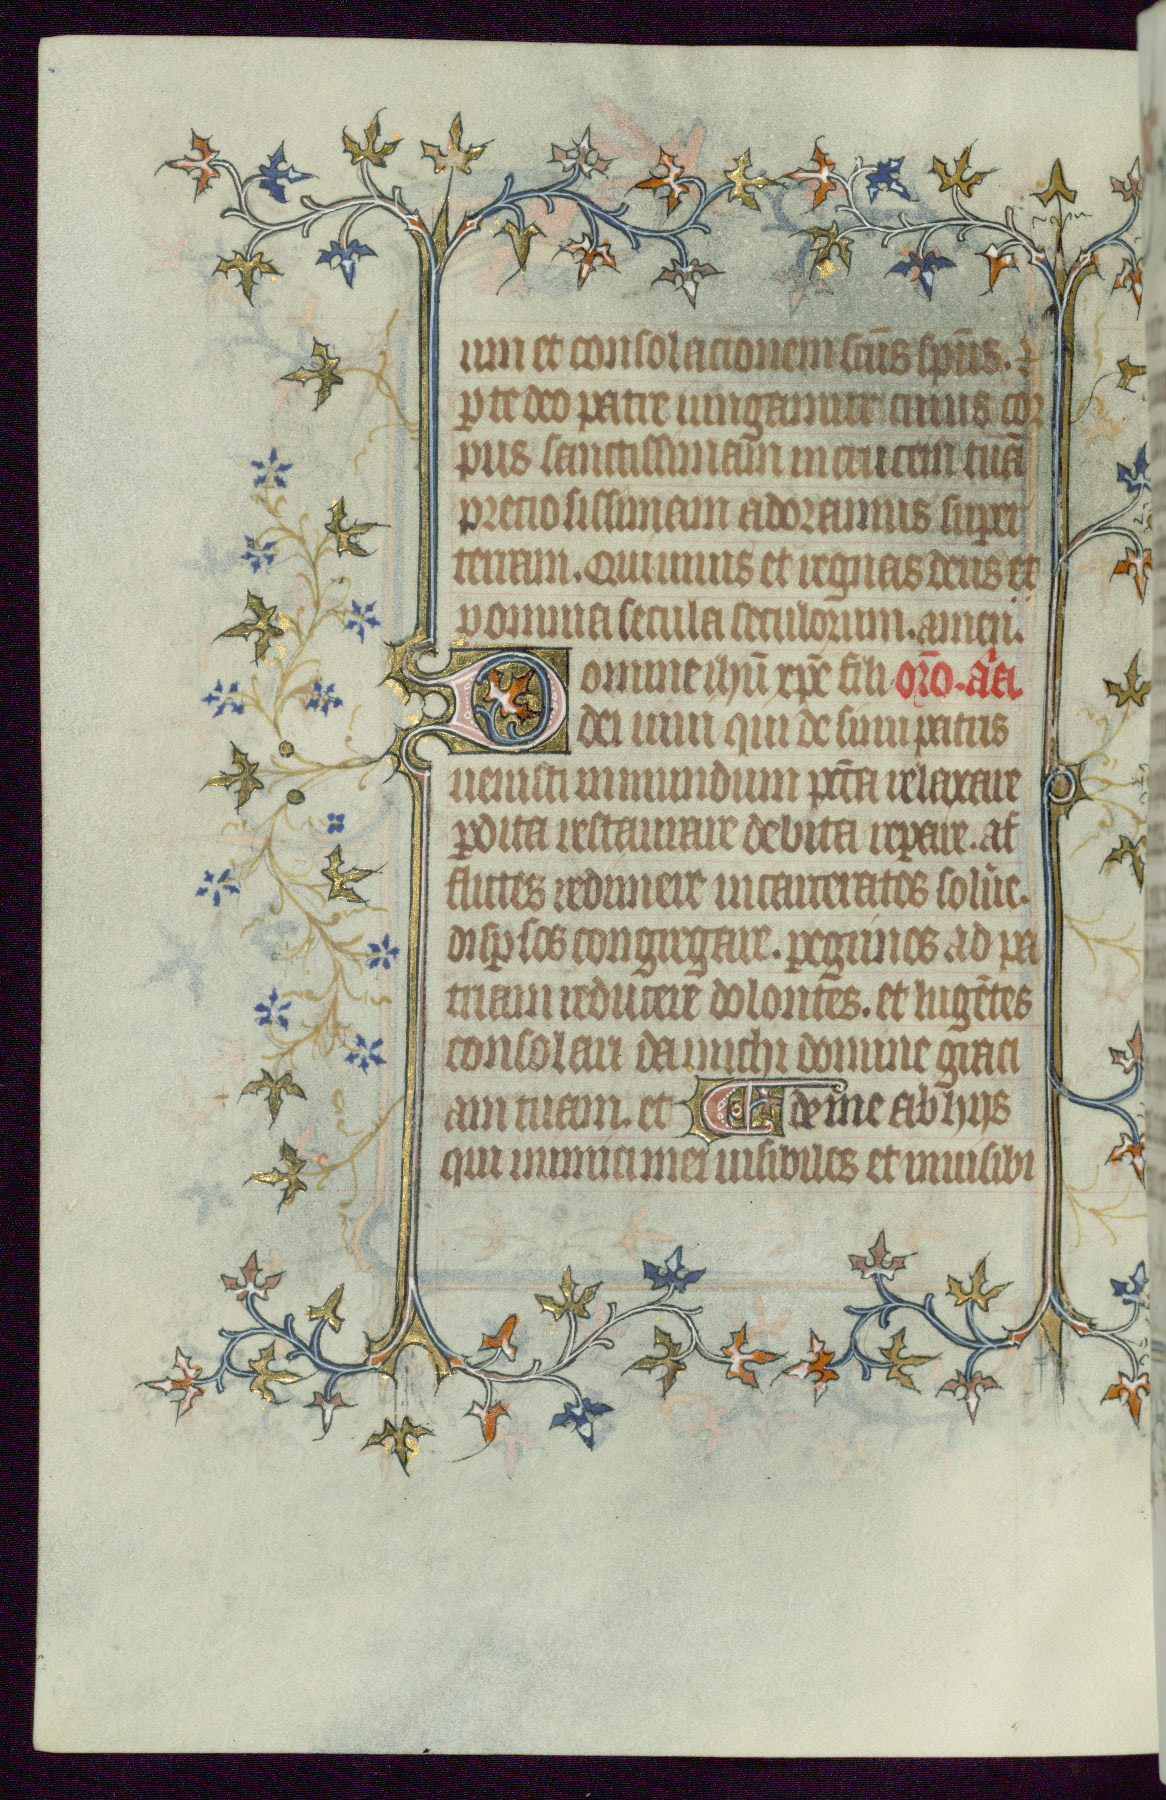 um et consolacionem sc̃us sp̃us. ⁊
p te deo patre uirigamur cuius cor
pus sanctissimam in crucem tuã
preciosissimam adoramus super
terram. Qui uiuis et regnas deus et
p omnia secula seculorum. amen.
Domine ihũ xp̃e fili or̃o. a̾a
dei uiui qui de sinu patris
uenisti in mundum pc̃ta relaxare
pdita restaurare debita repare. af
flictes redimere incarceratos soluẽ.
dispsos congregare. pegrinos ad pa
triam reducere dolontẽs. et lugẽtes
consolari da michi domine graci
am tuam. et Erde me ab hijs
qui inimici mei uisibiles et inuisibi